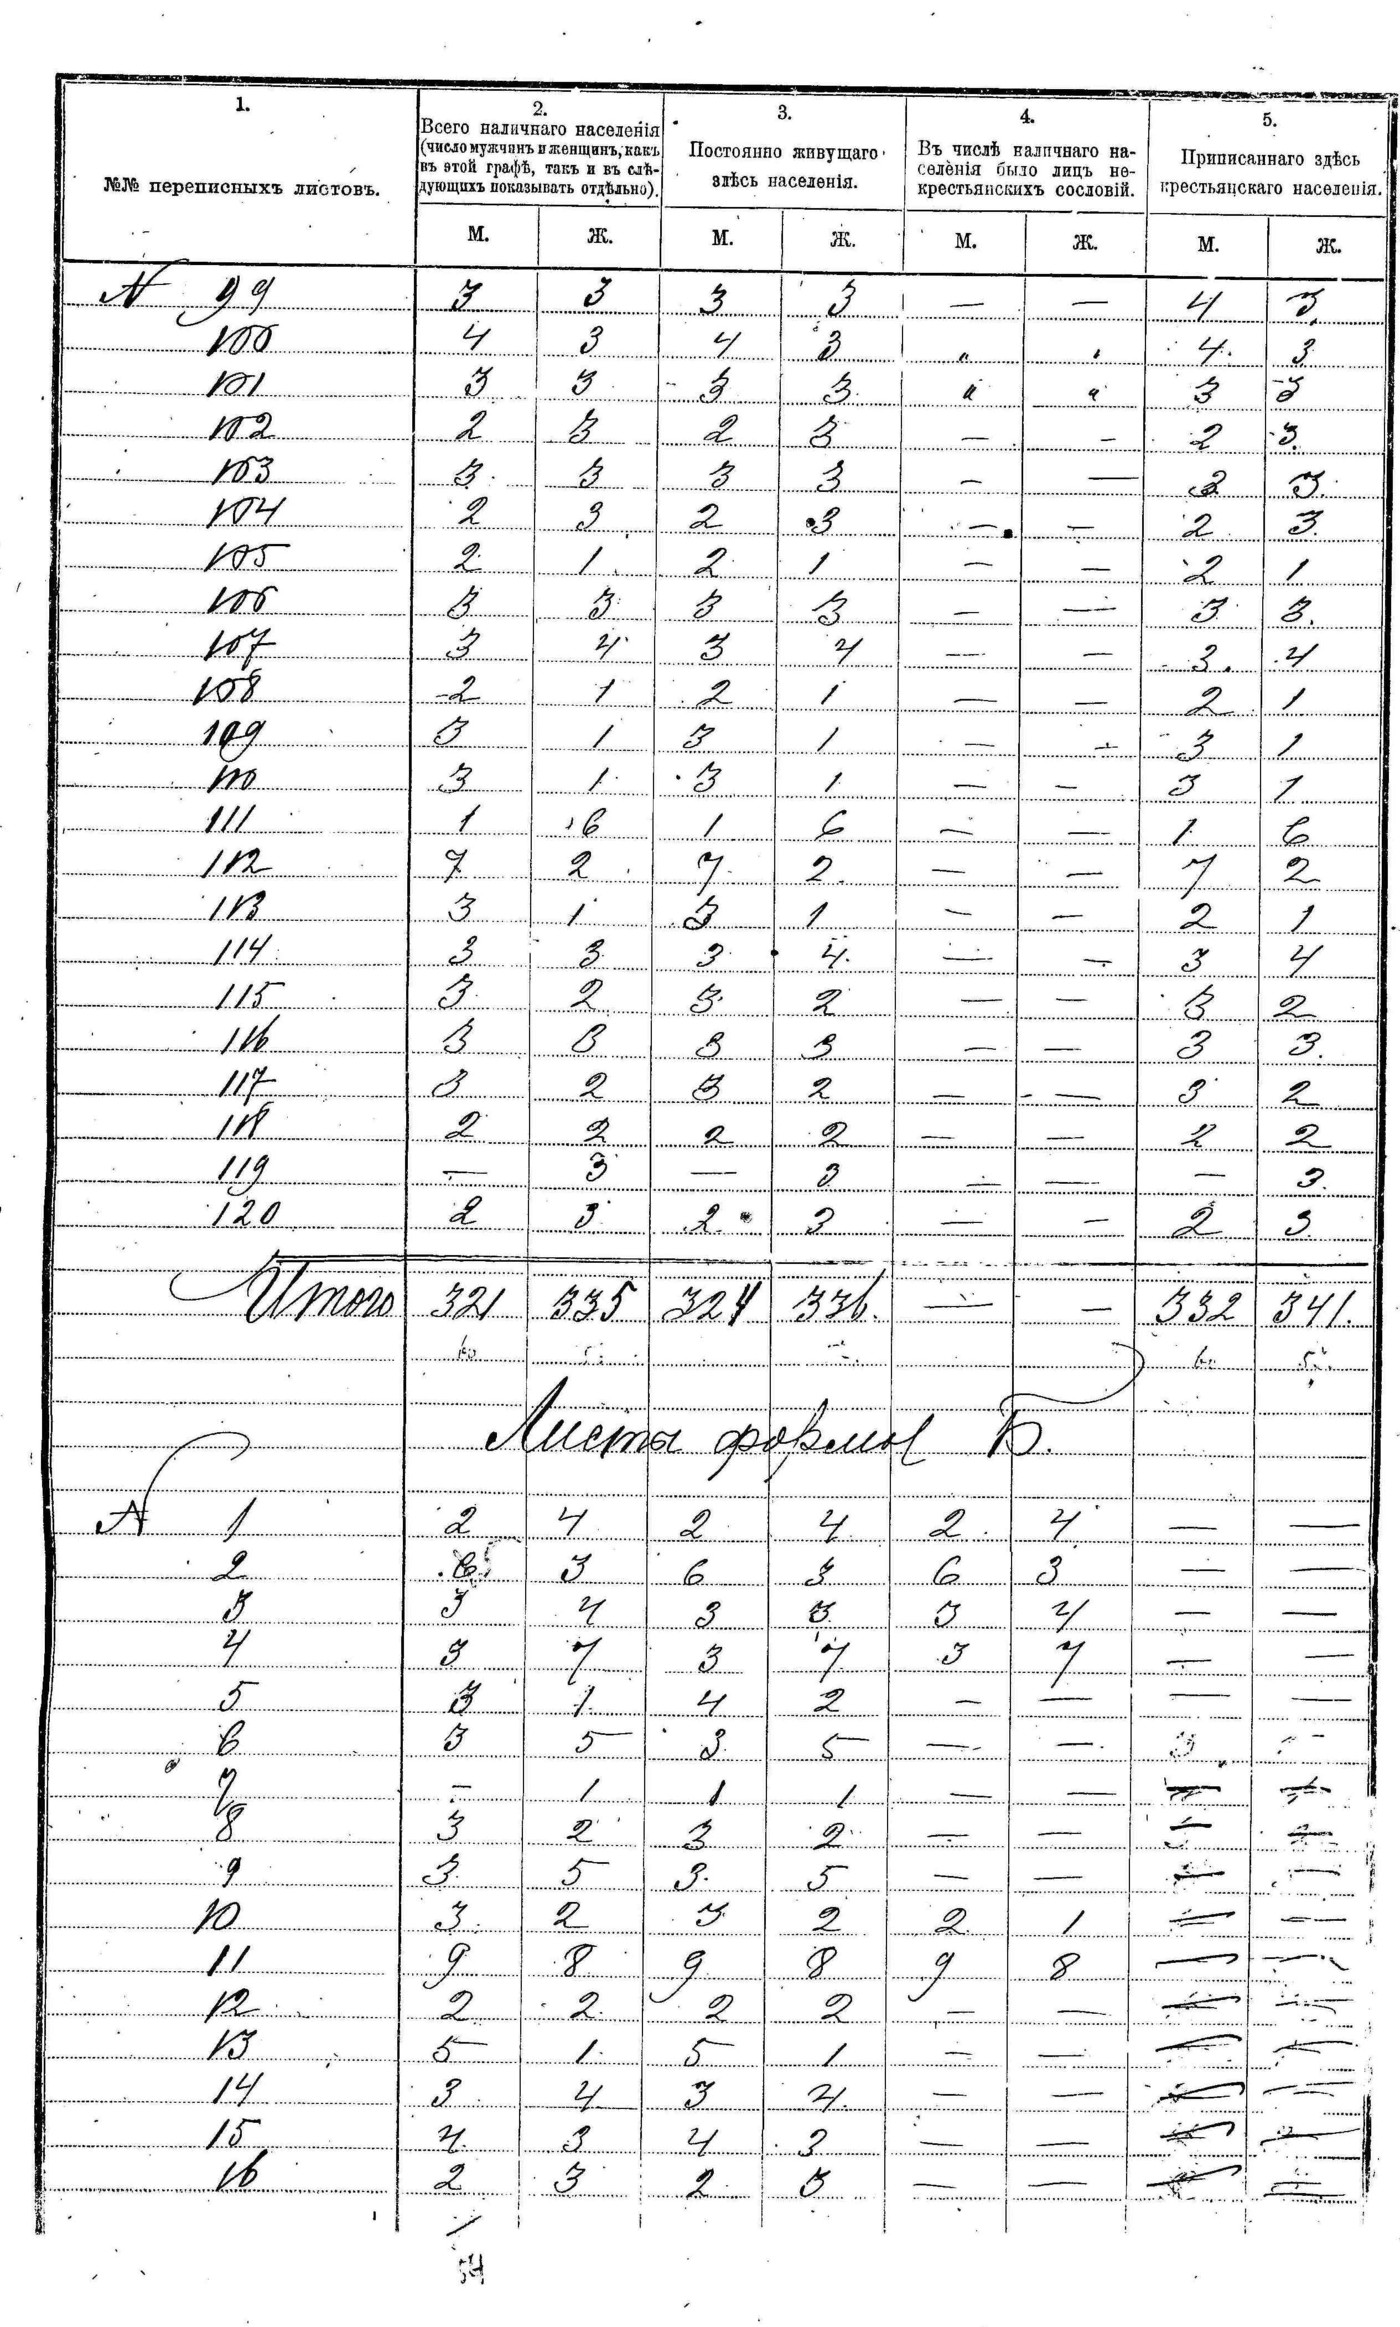 1. 2. 3. 4. 5.
№№ переписныхъ листовъ.
Всего наличнаго населенія
(число мужчинъ и женщинъ, какъ
въ этой графѣ, такъ и въ слѣ-
дующихъ показывать отдѣльно).
Постоянно живущаго
здѣсь населенія.
Въ числѣ наличнаго на-
селенія было лицъ не-
крестьянскихъ сословій.
Приписаннаго здѣсь
крестьянскаго населенія.
М. Ж. М. Ж. М. Ж. М. Ж.
№ 99 3 3 3 3 — — 4 3
100 4 3 4 3 " " 4 3
101 3 3 3 3 " " 3 3
102 2 3 2 3 — — 2 3
103 3 3 3 3 — — 3 3
104 2 3 2 3 — — 2 3
105 2 1 2 1 — — 2 1
106 3 3 3 3 — — 3 3
107 3 4 3 4 — — 3 4
108 2 1 2 1 — — 2 1
109 3 1 3 1 — — 3 1
110 3 1 3 1 — — 3 1
111 1 6 1 6 — — 1 6
112 7 2 7 2 — — 7 2
113 3 1 3 1 — — 2 1
114 3 3 3 4 — — 3 4
115 3 2 3 2 — — 3 2
116 3 3 3 3 — — 3 3
117 3 2 3 2 — — 3 2
118 2 2 2 2 — — 2 2
119 — 3 — 3 — — — 3
120 2 3 2 3 — — 2 3
Итого 321 335 324 336. — — 332 341.
Листы формы Б.
№ 1 2 4 2 4 2 4 — —
2 6 3 6 3 6 3 — —
3 3 4 3 3 3 4 — —
4 3 7 3 7 3 7 — —
5 3 1 4 2 — — — —
6 3 5 3 5 — —
7 — 1 1 1 — — — —
8 3 2 3 2 — — — —
9 3 5 3 5 — — — —
10 3 2 3 2 2 1 — —
11 9 8 9 8 9 8 — —
12 2 2 2 2 — — — —
13 5 1 5 1 — — — —
14 3 4 3 4 — — — —
15 4 3 4 3 — — — —
16 2 3 2 3 — — — —